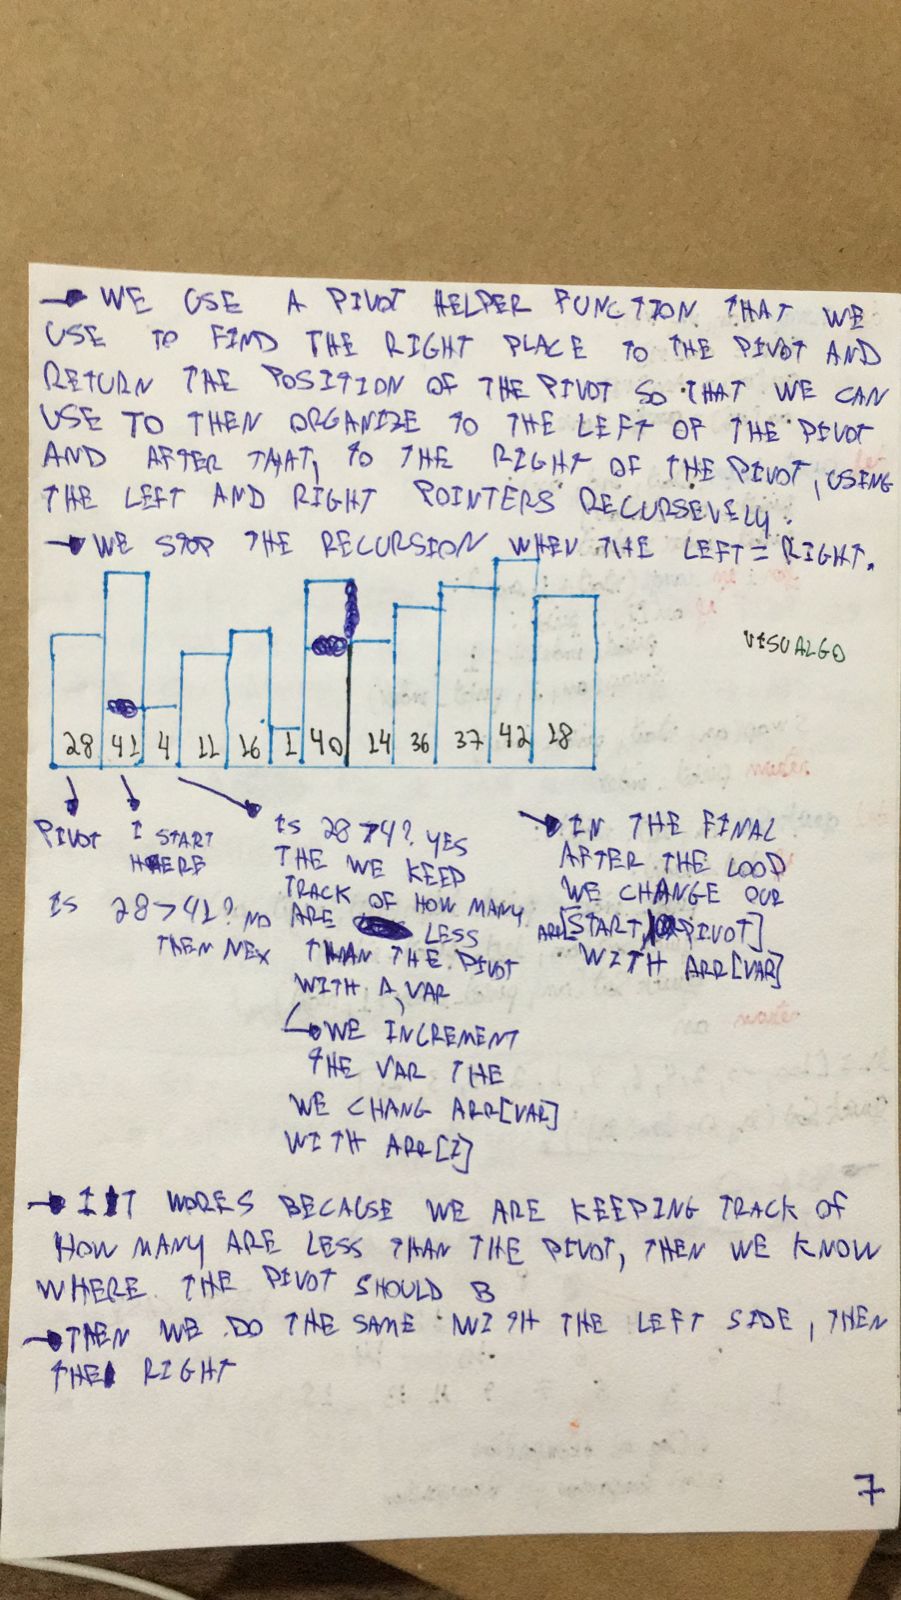 → WE USE A PIVOT HELPER FUNCTION THAT WE
USE TO FIND THE RIGHT PLACE TO THE PIVOT AND
RETURN THE POSITION OF THE PIVOT SO THAT WE CAN
USE TO THEN ORGANIZE TO THE LEFT OF THE PIVOT
AND AFTER THAT, TO THE RIGHT OF THE PIVOT, USING
THE LEFT AND RIGHT POINTERS RECURSEVELY.
→ WE STOP THE RECURSION WHEN THE LEFT = RIGHT.
VISUALGO
28 41 4 11 16 1 40 14 36 37 42 18
PIVOT
I START
HERE
IS 28 > 41? NO
THEN NEX
IS 28 > 4? YES
THE WE KEEP
TRACK OF HOW MANY
ARE LESS
THAN THE PIVOT
WITH A VAR
↳ WE INCREMENT
THE VAR THE
WE CHANG ARR[VAR]
WITH ARR[I]
→ IN THE FINAL
AFTER THE LOOP
WE CHANGE OUR
ARR[START, PIVOT]
WITH ARR[VAR]
→ IT WORES BECAUSE WE ARE KEEPING TRACK OF
HOW MANY ARE LESS THAN THE PIVOT, THEN WE KNOW
WHERE THE PIVOT SHOULD B
→ THEN WE DO THE SAME WITH THE LEFT SIDE, THEN
THE RIGHT
7